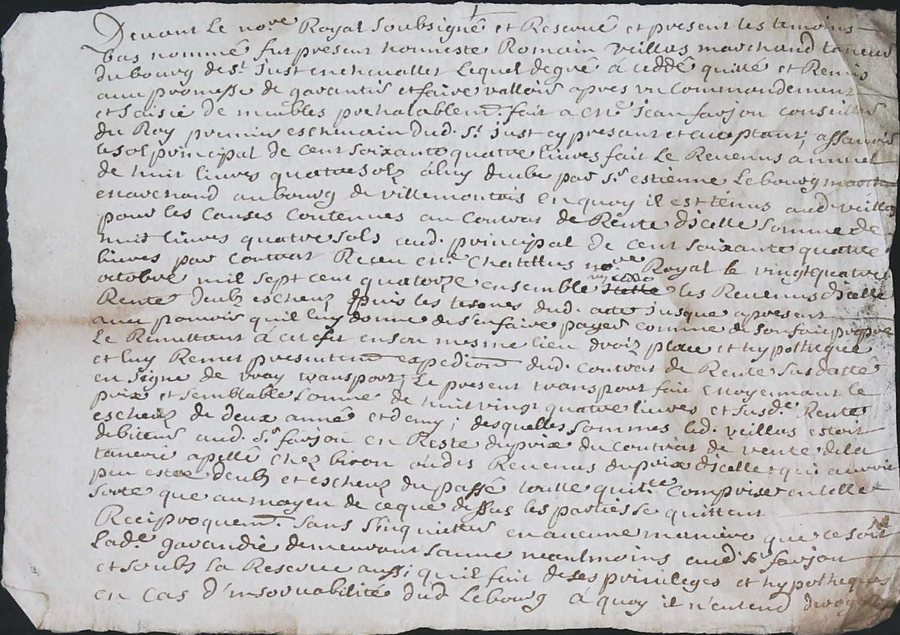 Devant le no.re Royal soubsigné et Reservé et present les temoins
bas nommé fut present honneste Romain veillas marchand taneur
du bourg de s.t Just en chevallet Lequel de gré à ceddé quitté et Remis
avec promesse de garantir et faire valloir apres un Commandement
et saisie de meubles prehalablem.t fait à m.re Jean farjon conseiller
du Roy premier eschevin dud. s.t Just cy present et acceptant, assavoir
le sol principal de cent soixante quatre livres fait le Revenus annuel
de huit livres quatre solz à luy deube par s.r estienne Lebourg
marchand au bourg de villemontais en quoy il est tenus aud. veillas
pour les causes contenues au contrat de Rente d'icelle somme de
huit livres quatre sols aud. principal de cent soixante quatre
livres par contrat Receu m.re Chatillus no.re Royal le vingt quatre
octobre mil sept cent quatorze ensemble les Revenus d'icelle
Rente deubz escheuz depuis les termes dud. acte jusque apresent
avec pouvoir qu'il luy donne de s'en faire payer comme de son fait propre
Le Remettant à cet effet en son mesme lieu droit place et hypotheque
et luy Remet presentem.t expedition dud. contrat de Rente susdatté
en signe de vray transport, Le present transport fait moyennant le
prix et semblable somme de huit vingt quatre livres et susd.e Rente
escheuz de deux année et demy; desquelles sommes led. veillas estoit
debiteur aud. s.r farjon en Reste du prix du contrat de vente de la
tanerie apellé chez biron ou des Revenus du prix d'icelle qui auroit
peu estre deubz et escheuz du passé toutte quitt.ce comprise en telle
sorte que au moyen de ce que dessus les parties se quittent
Reciproquem.t sans s'inquieter en aucune maniere que ce soit
Lad.e garandie demeurant sauve neantmoins aud. s.r farjon
et soubz la Reserve aussi qu'il fait de ses privileges et hypotheques
en cas d'insolvabilité dud. Lebourg à quoy il n'entend